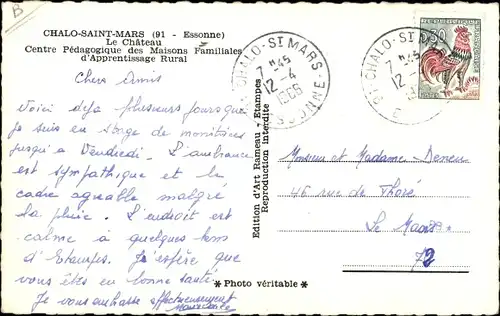 B
CHALO-SAINT-MARS (91 - Essonne)
Le Château
Centre Pédagogique des Maisons Familiales
d'Apprentissage Rural
Chers Amis
Voici déja plusieurs jours que
je suis en stage de monitrices
jusqu'à Vendredi. L'ambiance
est sympathique et le
cadre agréable malgré
la pluie. L'endroit est
calme à quelques kms
d'Etampes. J'espère que
vous êtes en bonne santé.
Je vous embrasse affectueusement
Edition d'Art Rameau - Etampes
Reproduction interdite
* Photo véritable *
CHALO-ST MARS
7 H45
12-4
1966
ESSONNE
CHALO-ST MARS
7 H45
12-4
Monsieur et Madame
46 rue de Thoré
Le Mans
72